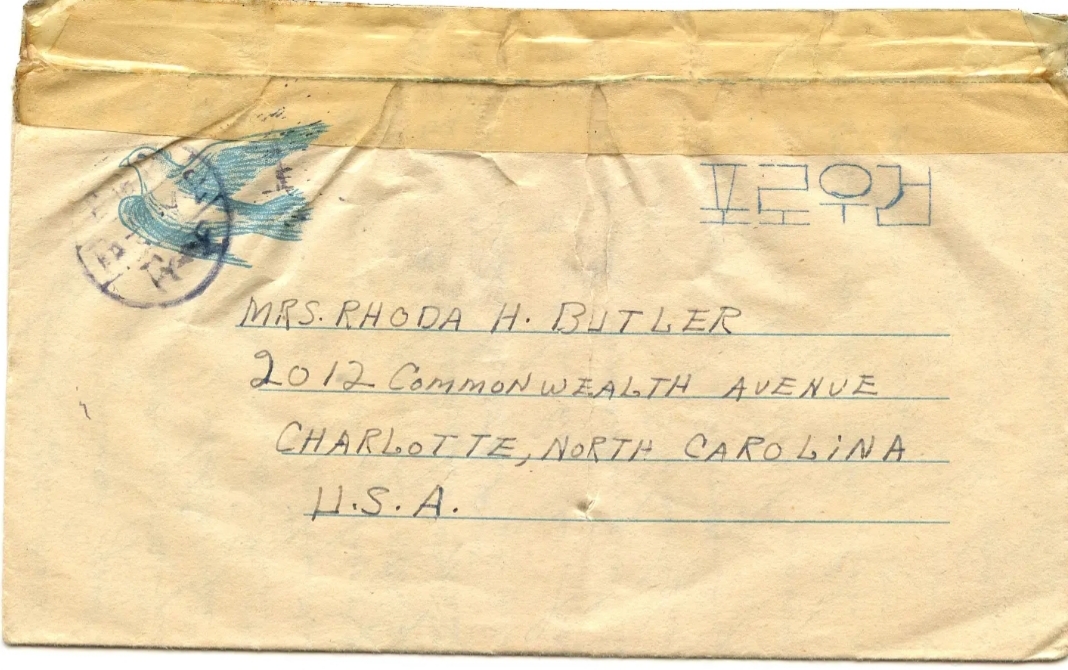 포로우건
MRS. RHODA H. BUTLER
2012 COMMONWEALTH AVENUE
CHARLOTTE, NORTH CAROLINA
U.S.A.